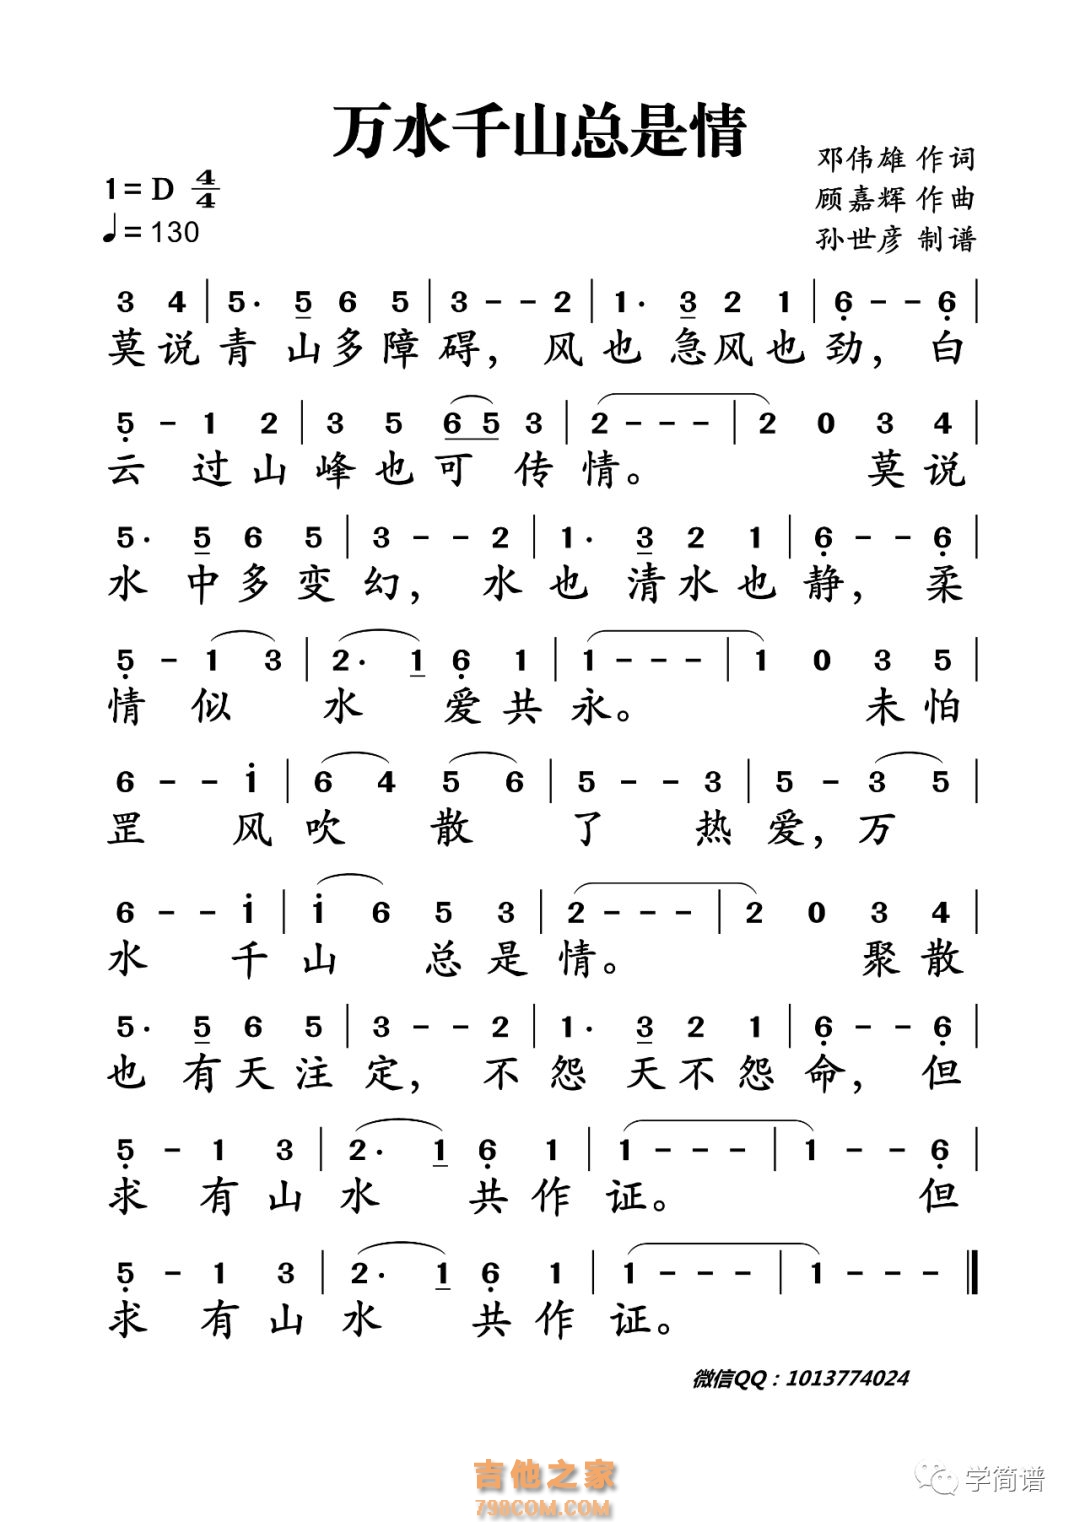 万水千山总是情
邓伟雄 作词
1= D 4/4
顾嘉辉 作曲
♩= 130
孙世彦 制谱
3 4 | 5· 5 6 5 | 3 - - 2 | 1· 3 2 1 | 6̣ - - 6̣ |
莫说青山多障碍，风也急风也劲，白
5̣ - 1 2 | 3 5 6 5 3 | 2 - - - | 2 0 3 4 |
云过山峰也可传情。莫说
5· 5 6 5 | 3 - - 2 | 1· 3 2 1 | 6̣ - - 6̣ |
水中多变幻，水也清水也静，柔
5̣ - 1 3 | 2· 1 6̣ 1 | 1 - - - | 1 0 3 5 |
情似水爱共永。未怕
6 - - i | 6 4 5 6 | 5 - - 3 | 5 - 3 5 |
罡风吹散了热爱，万
6 - - i | i 6 5 3 | 2 - - - | 2 0 3 4 |
水千山总是情。聚散
5· 5 6 5 | 3 - - 2 | 1· 3 2 1 | 6̣ - - 6̣ |
也有天注定，不怨天不怨命，但
5̣ - 1 3 | 2· 1 6̣ 1 | 1 - - - | 1 - - 6̣ |
求有山水共作证。但
5̣ - 1 3 | 2· 1 6̣ 1 | 1 - - - | 1 - - - ‖
求有山水共作证。
微信QQ：1013774024
吉他之家
798COM.COM
学简谱